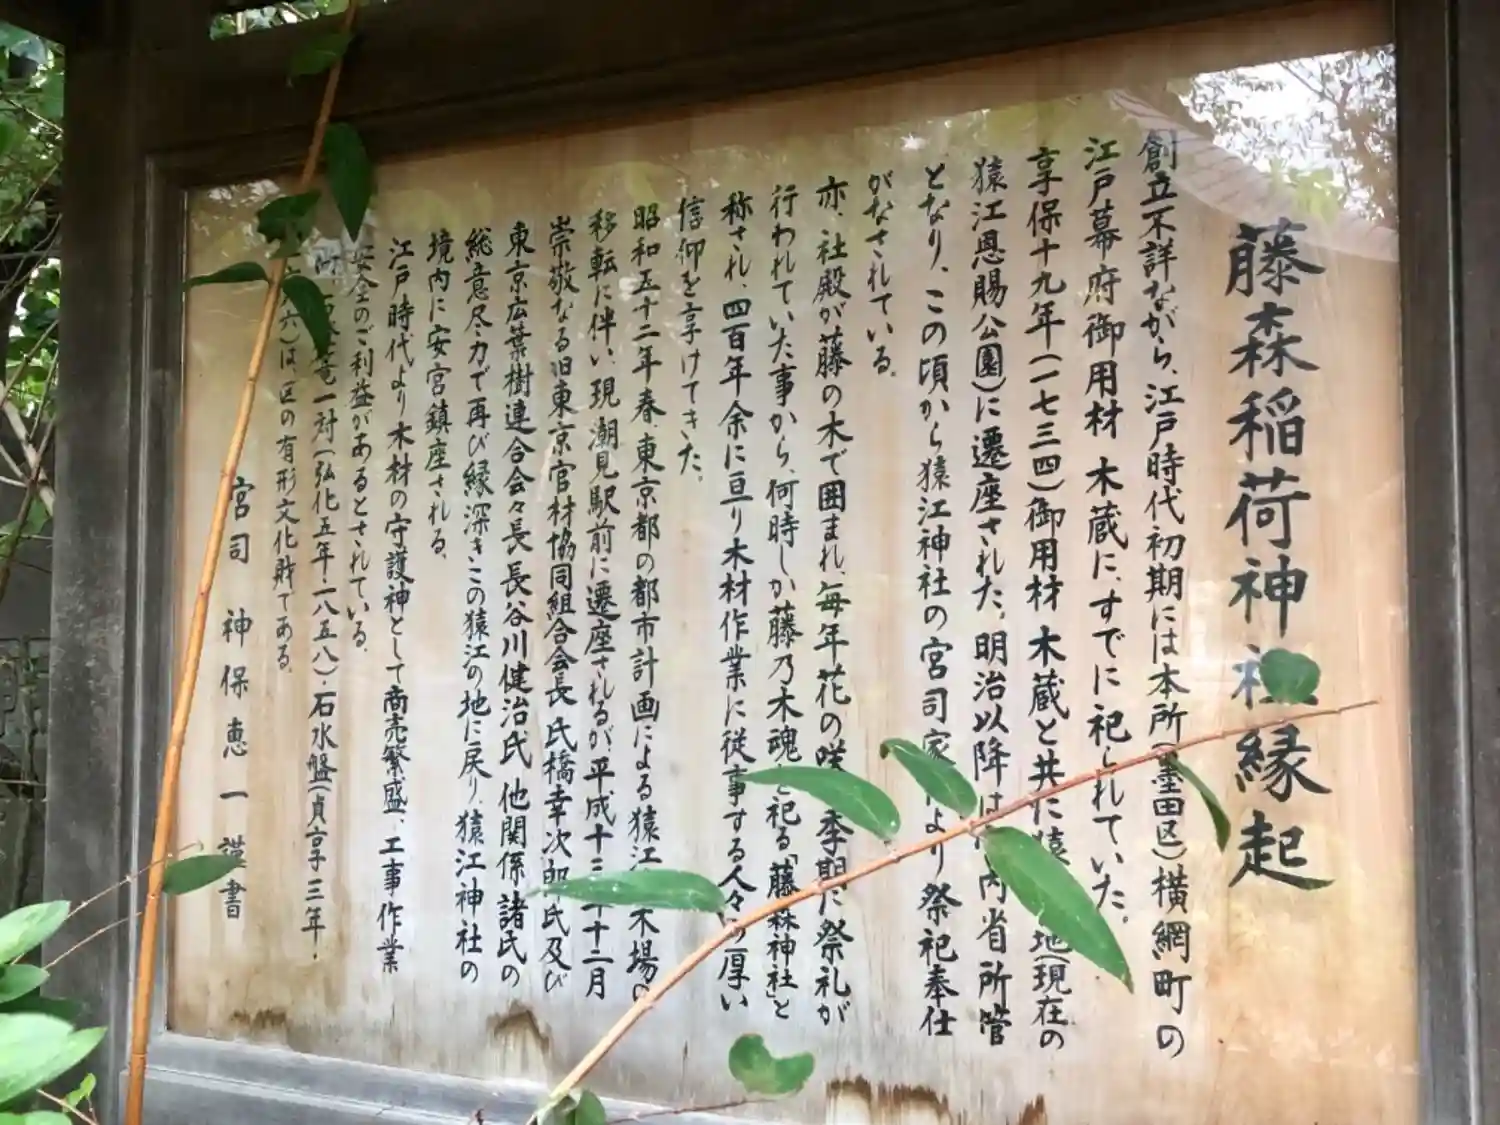 藤森稲荷神社縁起
創立不詳ながら、江戸時代初期には本所(墨田区)横網町の
江戸幕府御用材木蔵に、すでに祀られていた。
享保十九年(一七三四)御用材木蔵と共に猿 地(現在の
猿江恩賜公園)に遷座された。明治以降は 内省所管
となり、この頃から猿江神社の宮司家 より祭祀奉仕
がなされている。
亦、社殿が藤の木で囲まれ、毎年花の咲 季期に祭礼が
行われていた事から、何時しか藤乃木魂 祀る「藤森神社」と
称され、四百年余に亘り木材作業に従事する人々の厚い
信仰を享けてきた。
昭和五十二年春、東京都の都市計画による猿江 木場の
移転に伴い、現潮見駅前に遷座されるが、平成十三年十二月
崇敬なる旧東京官材協同組合会長 氏橋幸次郎氏及び
東京広葉樹連合会々長 長谷川健治氏 他関係諸氏の
総意尽力で再び縁深きこの猿江の地に戻り、猿江神社の
境内に安宮鎮座される。
江戸時代より木材の守護神として商売繁盛、工事作業
安全のご利益があるとされている。
一対(弘化五年・一八五八)・石水盤(貞享三年・
六)は、区の有形文化財である。
宮司 神保恵一 謹書